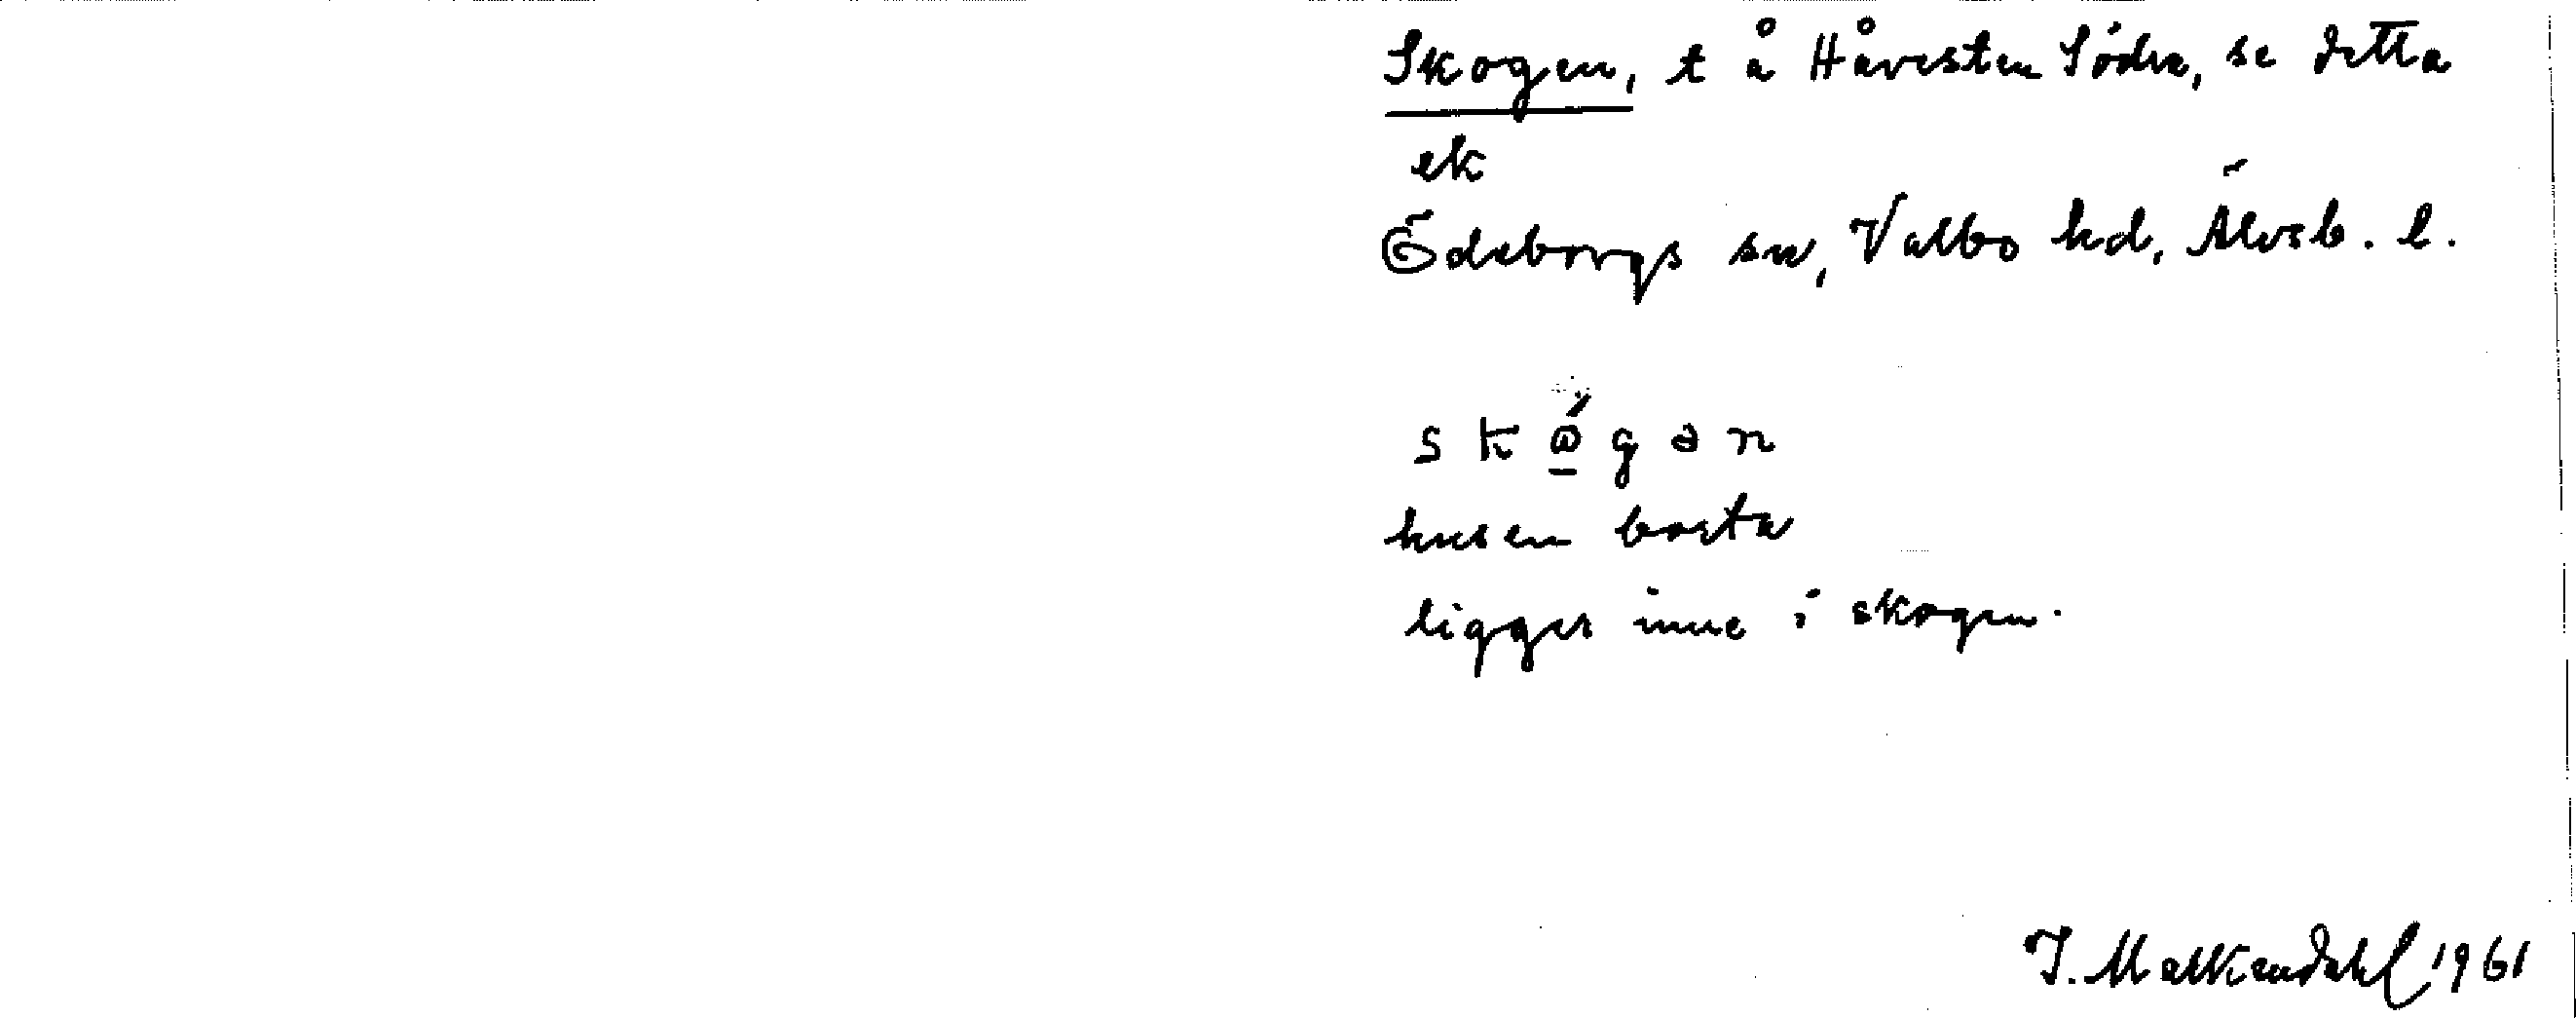 Skogen, t å Håvesten Södra, se detta
ek
Ödeborgs sn, Valbo hd, Älvsb. l.
skógən
husen borta
ligger inne i skogen.
1961